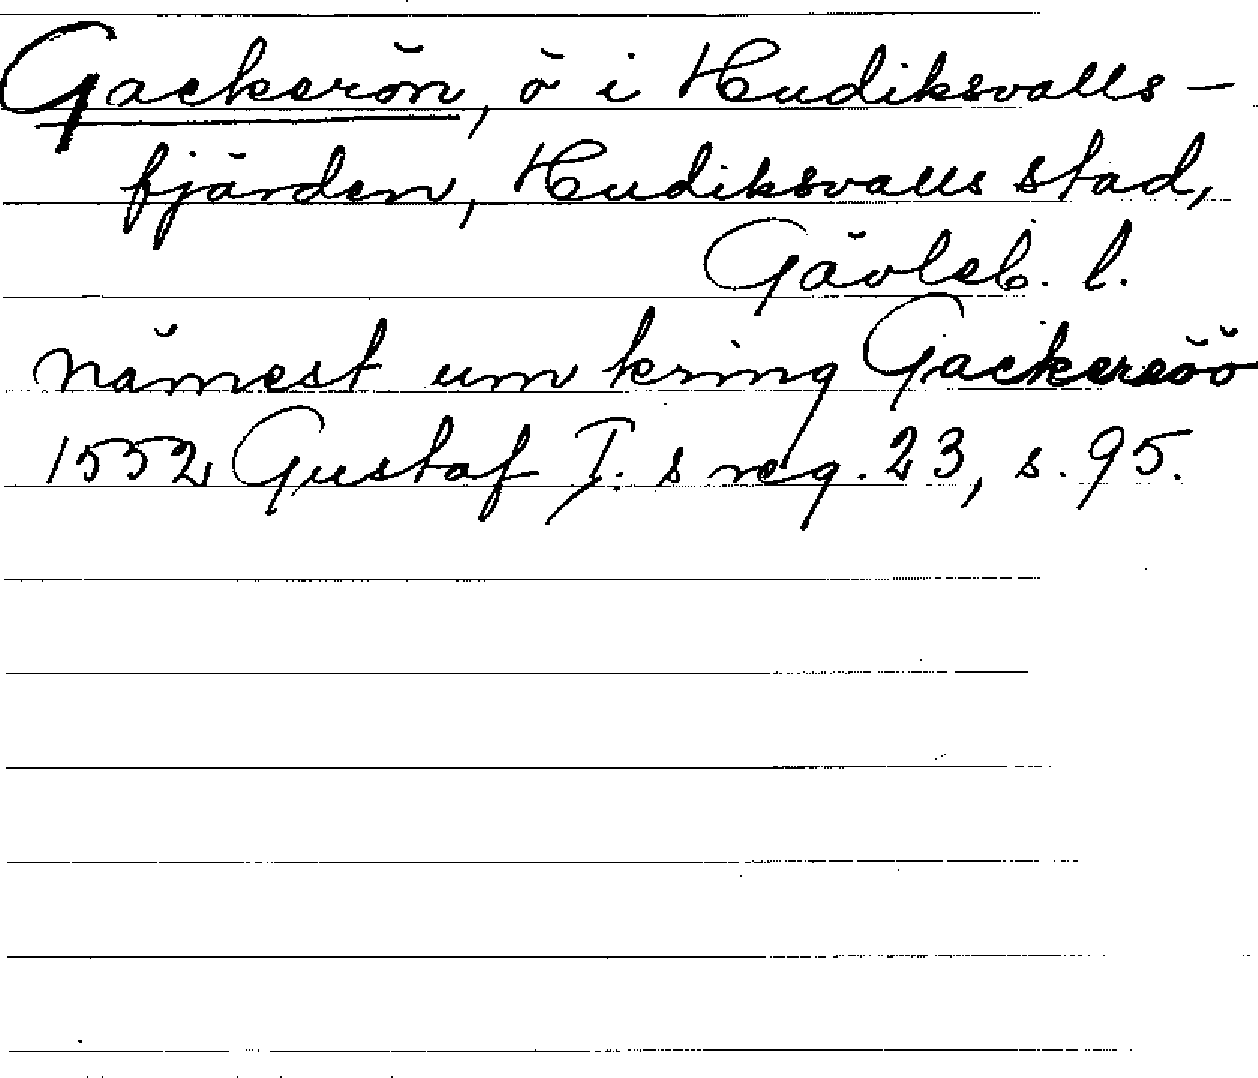 Gackerön, ö i Hudiksvalls-
fjärden, Hudiksvalls stad,
Gävleb. l.
nämest um kring Gackereöö
1552 Gustaf I. s reg. 23, s. 95.